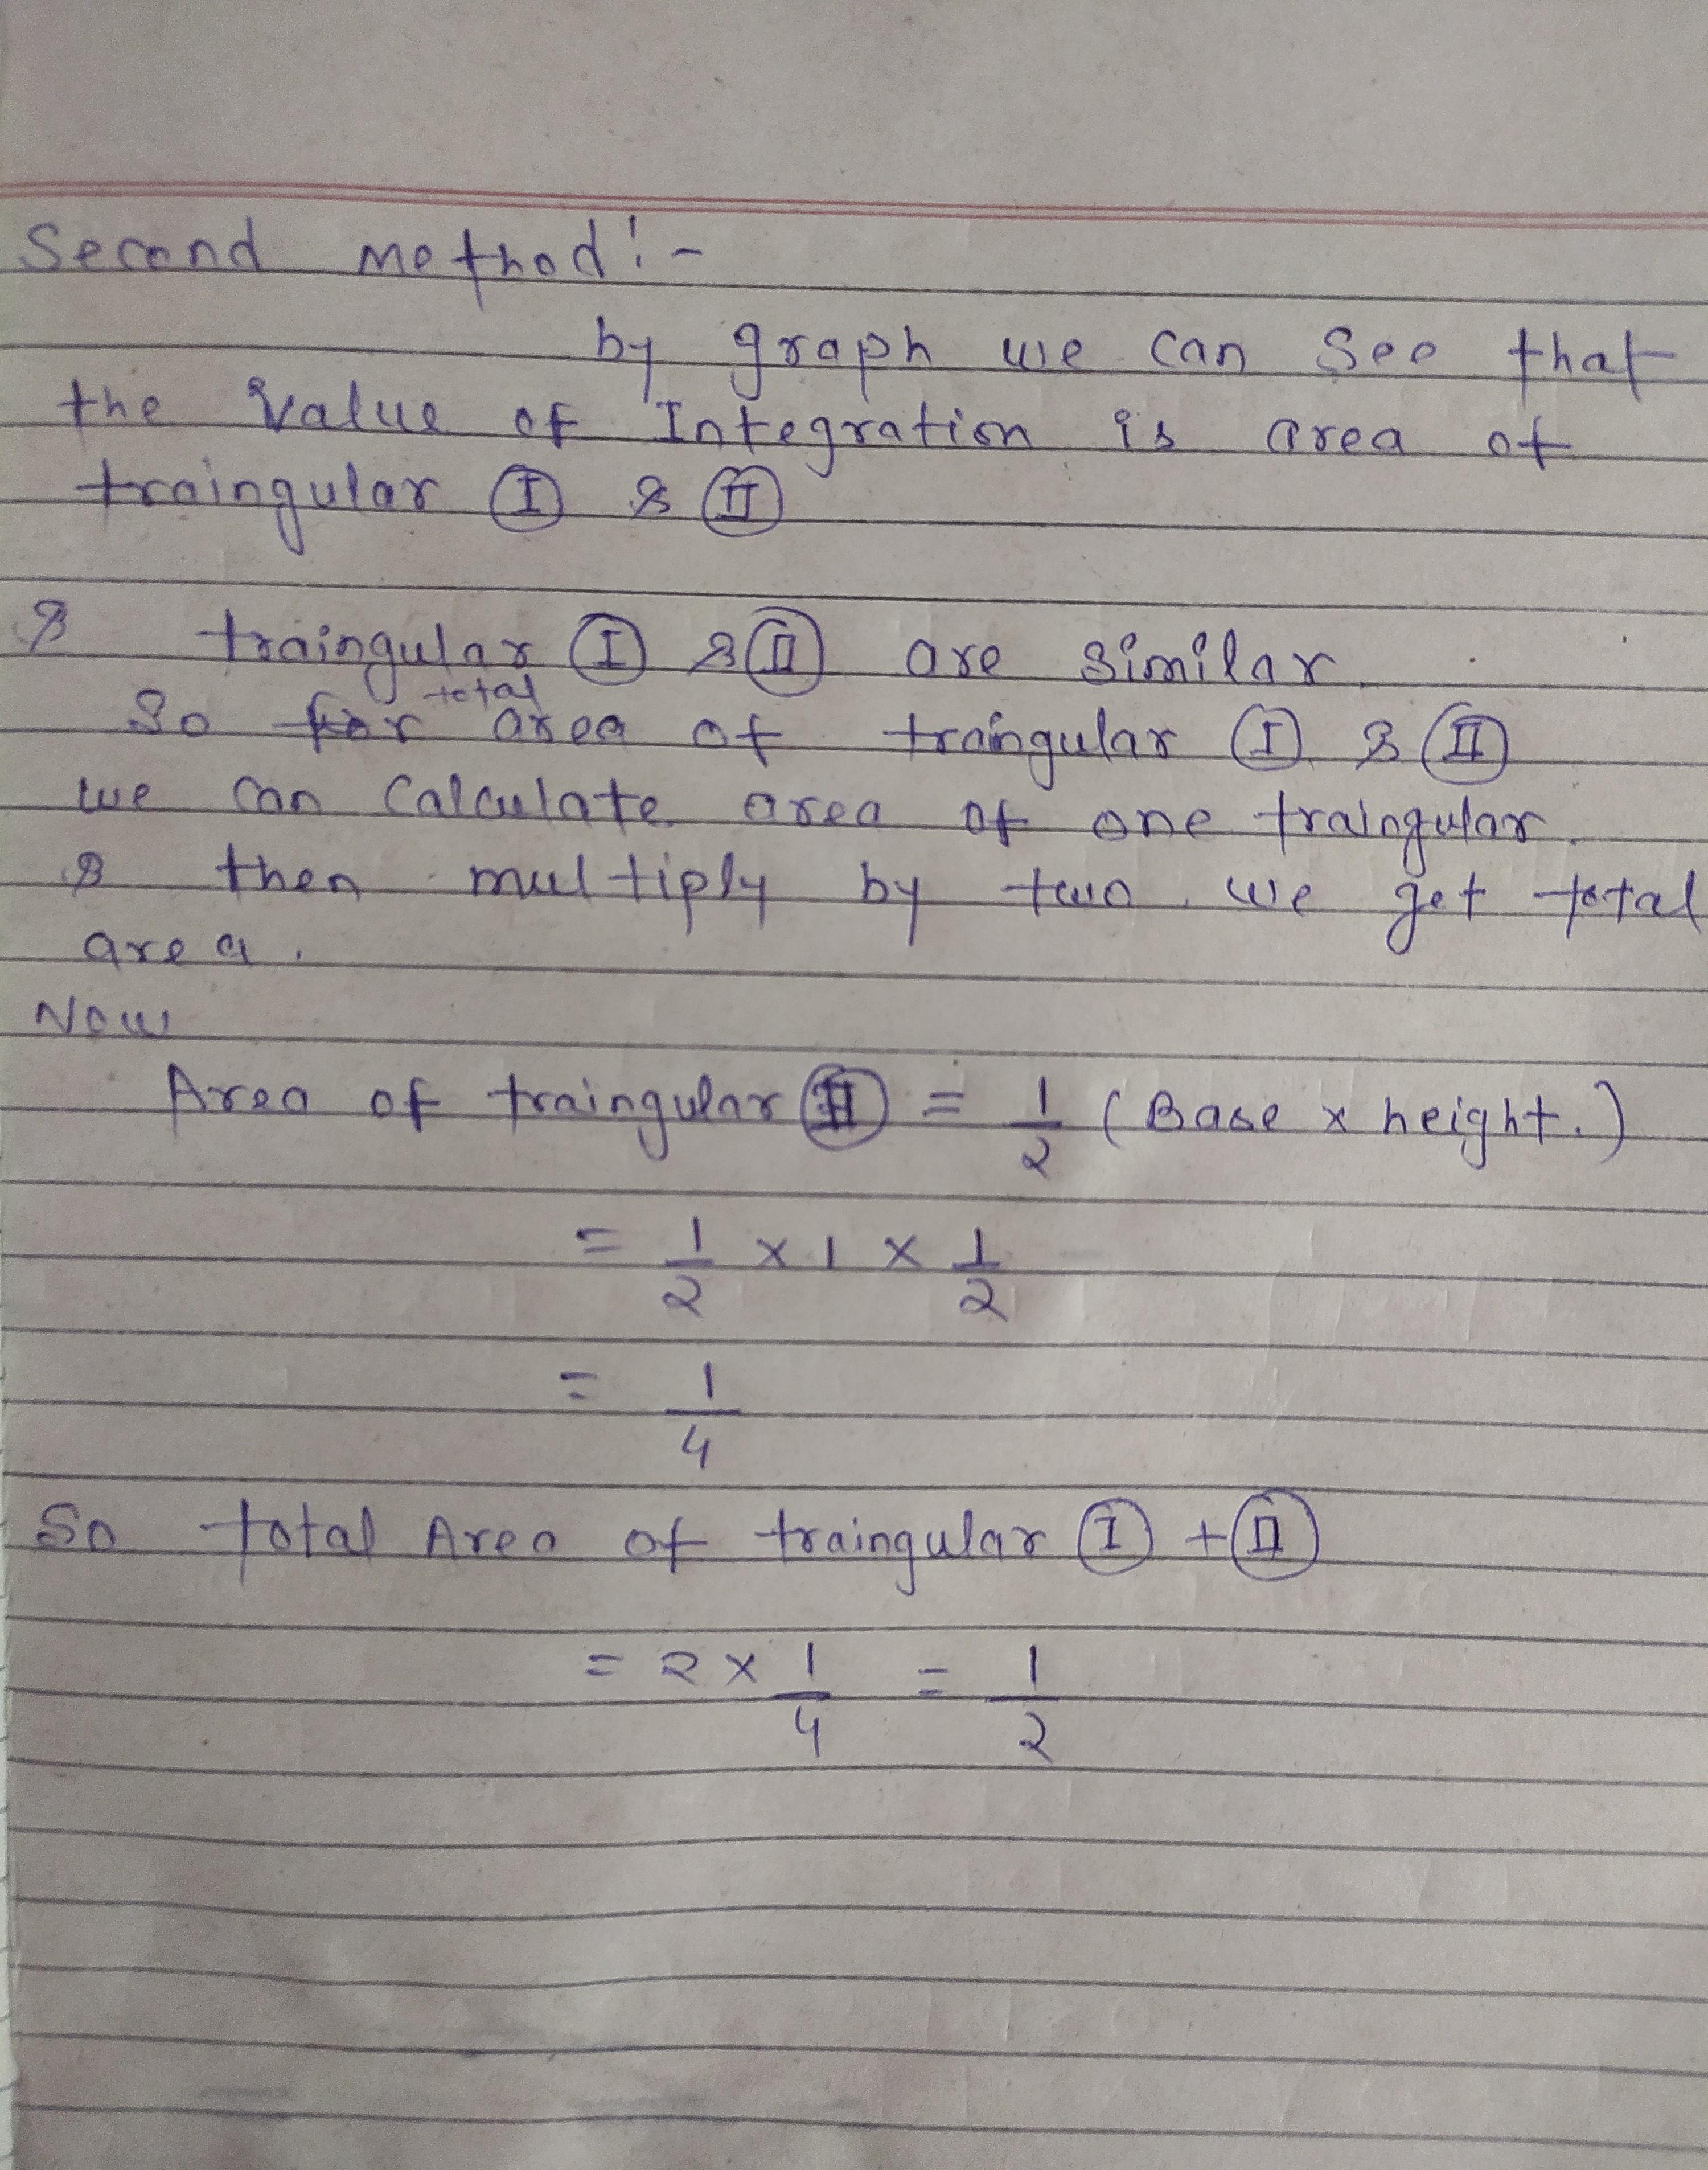 Second method:-
by graph we can see that
the value of Integration is area of
traingular I & II
& traingular I & II are similar.
total
So for area of traingular I & II
we can calculate area of one traingular
& then multiply by two. we get total
area.
Now
Area of traingular II = 1/2 (Base x height.)
= 1/2 x 1 x 1/2
= 1/4
So total Area of traingular I + II
= 2 x 1/4 = 1/2